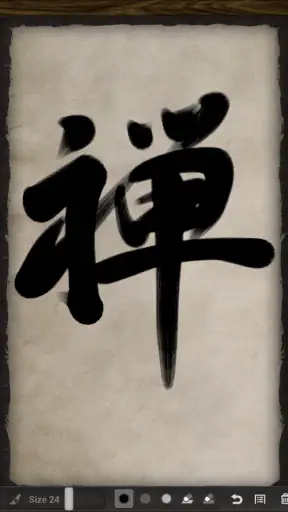 禅
Size 24